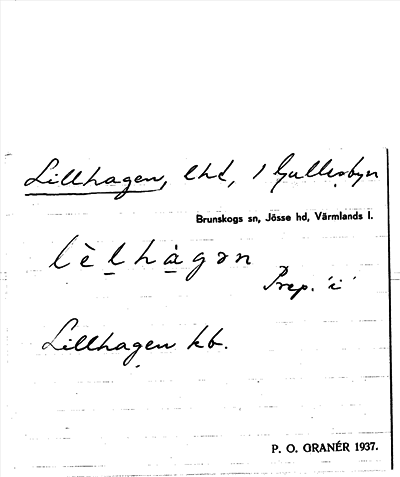 Lillhagen, lhd, 1 Gullersbyn
Brunskogs sn, Jösse hd, Värmlands l.
lèl̠hà̠gən
Prep. 'i'
Lillhagen kb.
P. O. GRANÉR 1937.